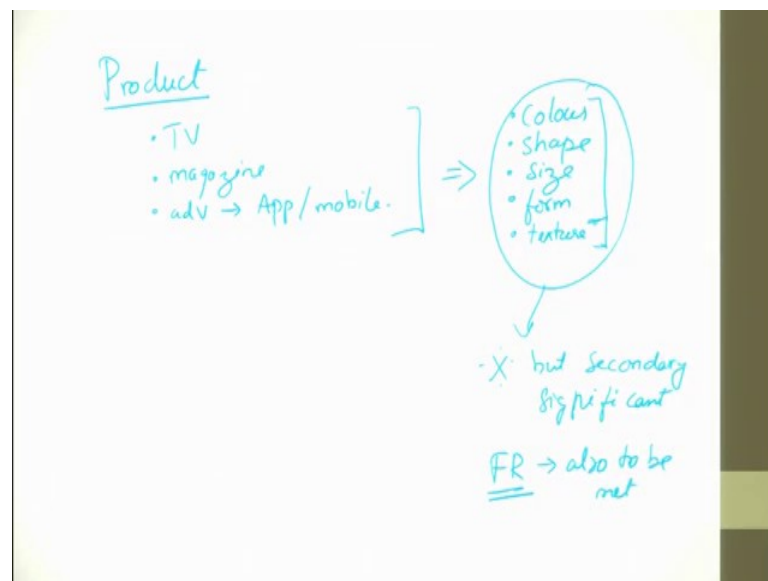 Product
• TV
• magozine
• adv → App/mobile.
⇒
• Colour
• shape
• size
• form
• texture
X but secondary
significant
FR → also to be
met